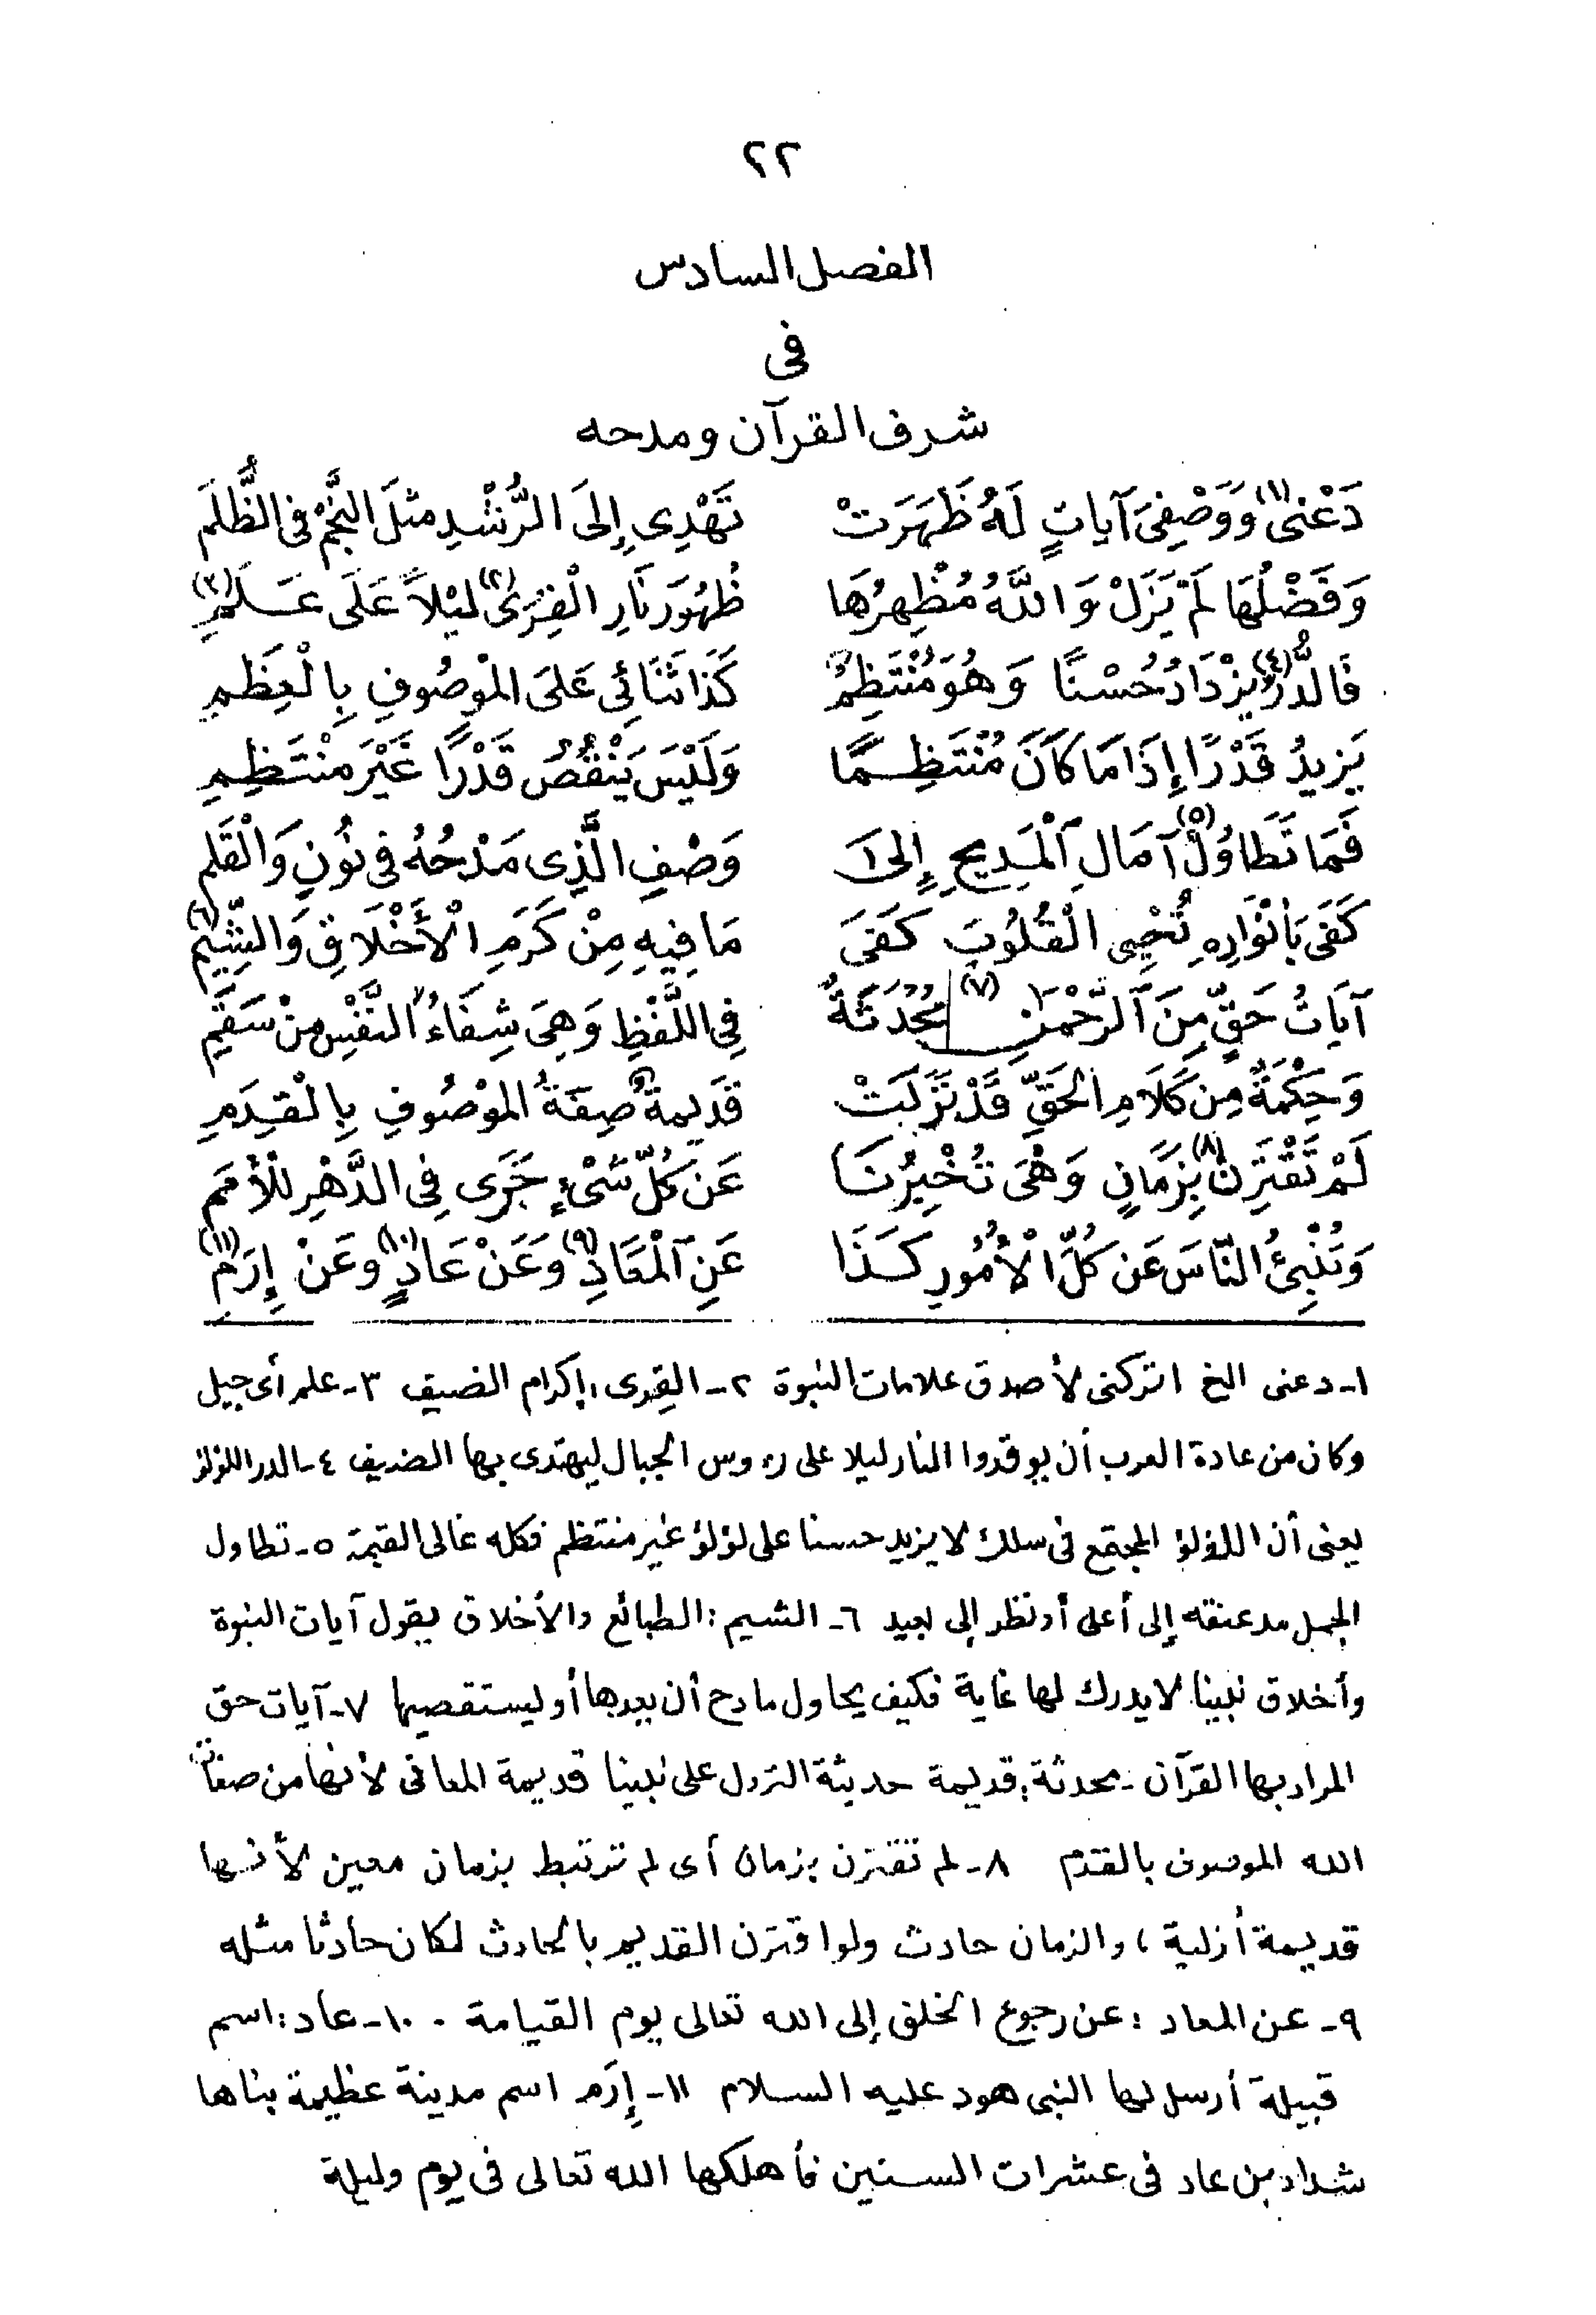 ٢٢
الفصل السادس
فى
شرف القرآن ومدحه
دَعْنِى(١) وَوَصْفِىَ آيَاتٍ لَهُ ظَهَرَتْ تَهْدِى إِلَى الرُّشْدِ مثلَ النَّجْمِ فى الظُّلَمِ
وَفَضْلُهَا لَمْ يَزَلْ وَاللَّهُ مُظْهِرُهَا ظُهُورَ نَارِ الْقِرَى(٢) لَيْلاً عَلَى عَلَمِ(٣)
فَالدُّرُّ(٤) يَزْدَادُ حُسْنًا وَهُوَ مُنْتَظِمٌ كَذَا ثَنَائِى عَلَى الْمَوْصُوفِ بِالْعِظَمِ
يَزِيدُ قَدْرًا إِذَا مَا كَانَ مُنْتَظِمًا وَلَيْسَ يَنْقُصُ قَدْرًا غَيْرَ مُنْتَظِمِ
فَمَا تَطَاوُلُ(٥) آمَالِ الْمَدِيحِ إِلَى وَصْفِ الَّذِى مَدْحُهُ فى نُونٍ وَالْقَلَمِ
كَفَى بِأَنْوَارِهِ تُحْيِى الْقُلُوبَ كَفَى مَا فِيهِ مِنْ كَرَمِ الْأَخْلَاقِ وَالشِّيَمِ(٦)
آيَاتُ حَقٍّ مِنَ الرَّحْمَنِ (٧) مُحْدَثَةٌ فِى اللَّفْظِ وَهِىَ شِفَاءُ النَّفْسِ مِنْ سَقَمِ
وَحِكْمَةٌ مِنْ كَلَامِ الْحَقِّ قَدْ نَزَلَتْ قَدِيمَةٌ صِفَةُ الْمَوْصُوفِ بِالْقِدَمِ
لَمْ تَقْتَرِنْ(٨) بِزَمَانٍ وَهْىَ تُخْبِرُنَا عَنْ كُلِّ شَىْءٍ جَرَى فِى الدَّهْرِ لِلْأُمَمِ
وَتُنْبِئُ النَّاسَ عَنْ كُلِّ الْأُمُورِ كَذَا عَنِ الْمَعَادِ(٩) وَعَنْ عَادٍ(١٠) وَعَنْ إِرَمِ(١١)
١- دعنى الخ اتركنى لأصدق علامات النبوة ٢- القِرى: إكرام الضيف ٣- علم أى جبل
وكان من عادة العرب أن يوقدوا النار ليلا على رءوس الجبال ليهتدى بها الضيف ٤- الدر اللؤلؤ
يعنى أن اللؤلؤ المجتمع فى سلك لا يزيد حسنا على لؤلؤ غير منتظم فكله غالى القيمة ٥- تطاول
الجمل مد عنقه إلى أعلى أو نظر إلى بعيد ٦- الشيم: الطبائع والأخلاق يقول آيات النبوة
وأخلاق نبينا لا يدرك لها غاية فكيف يحاول مادح أن يعدها أو يستقصيها ٧- آيات حق
المراد بها القرآن - محدثة: قديمة حديثة النزول على نبينا قديمة المعانى لأنها من صفات
الله الموصوف بالقدم ٨- لم تقترن بزمان أى لم ترتبط بزمان معين لأنها
قديمة أزلية، والزمان حادث ولو اقترن القديم بالحادث لكان حادثا مثله
٩- عن المعاد: عن رجوع الخلق إلى الله تعالى يوم القيامة. ١٠- عاد: اسم
قبيلة أرسل لها النبى هود عليه السلام ١١- إِرَم اسم مدينة عظيمة بناها
شداد بن عاد فى عشرات السنين فأهلكها الله تعالى فى يوم وليلة